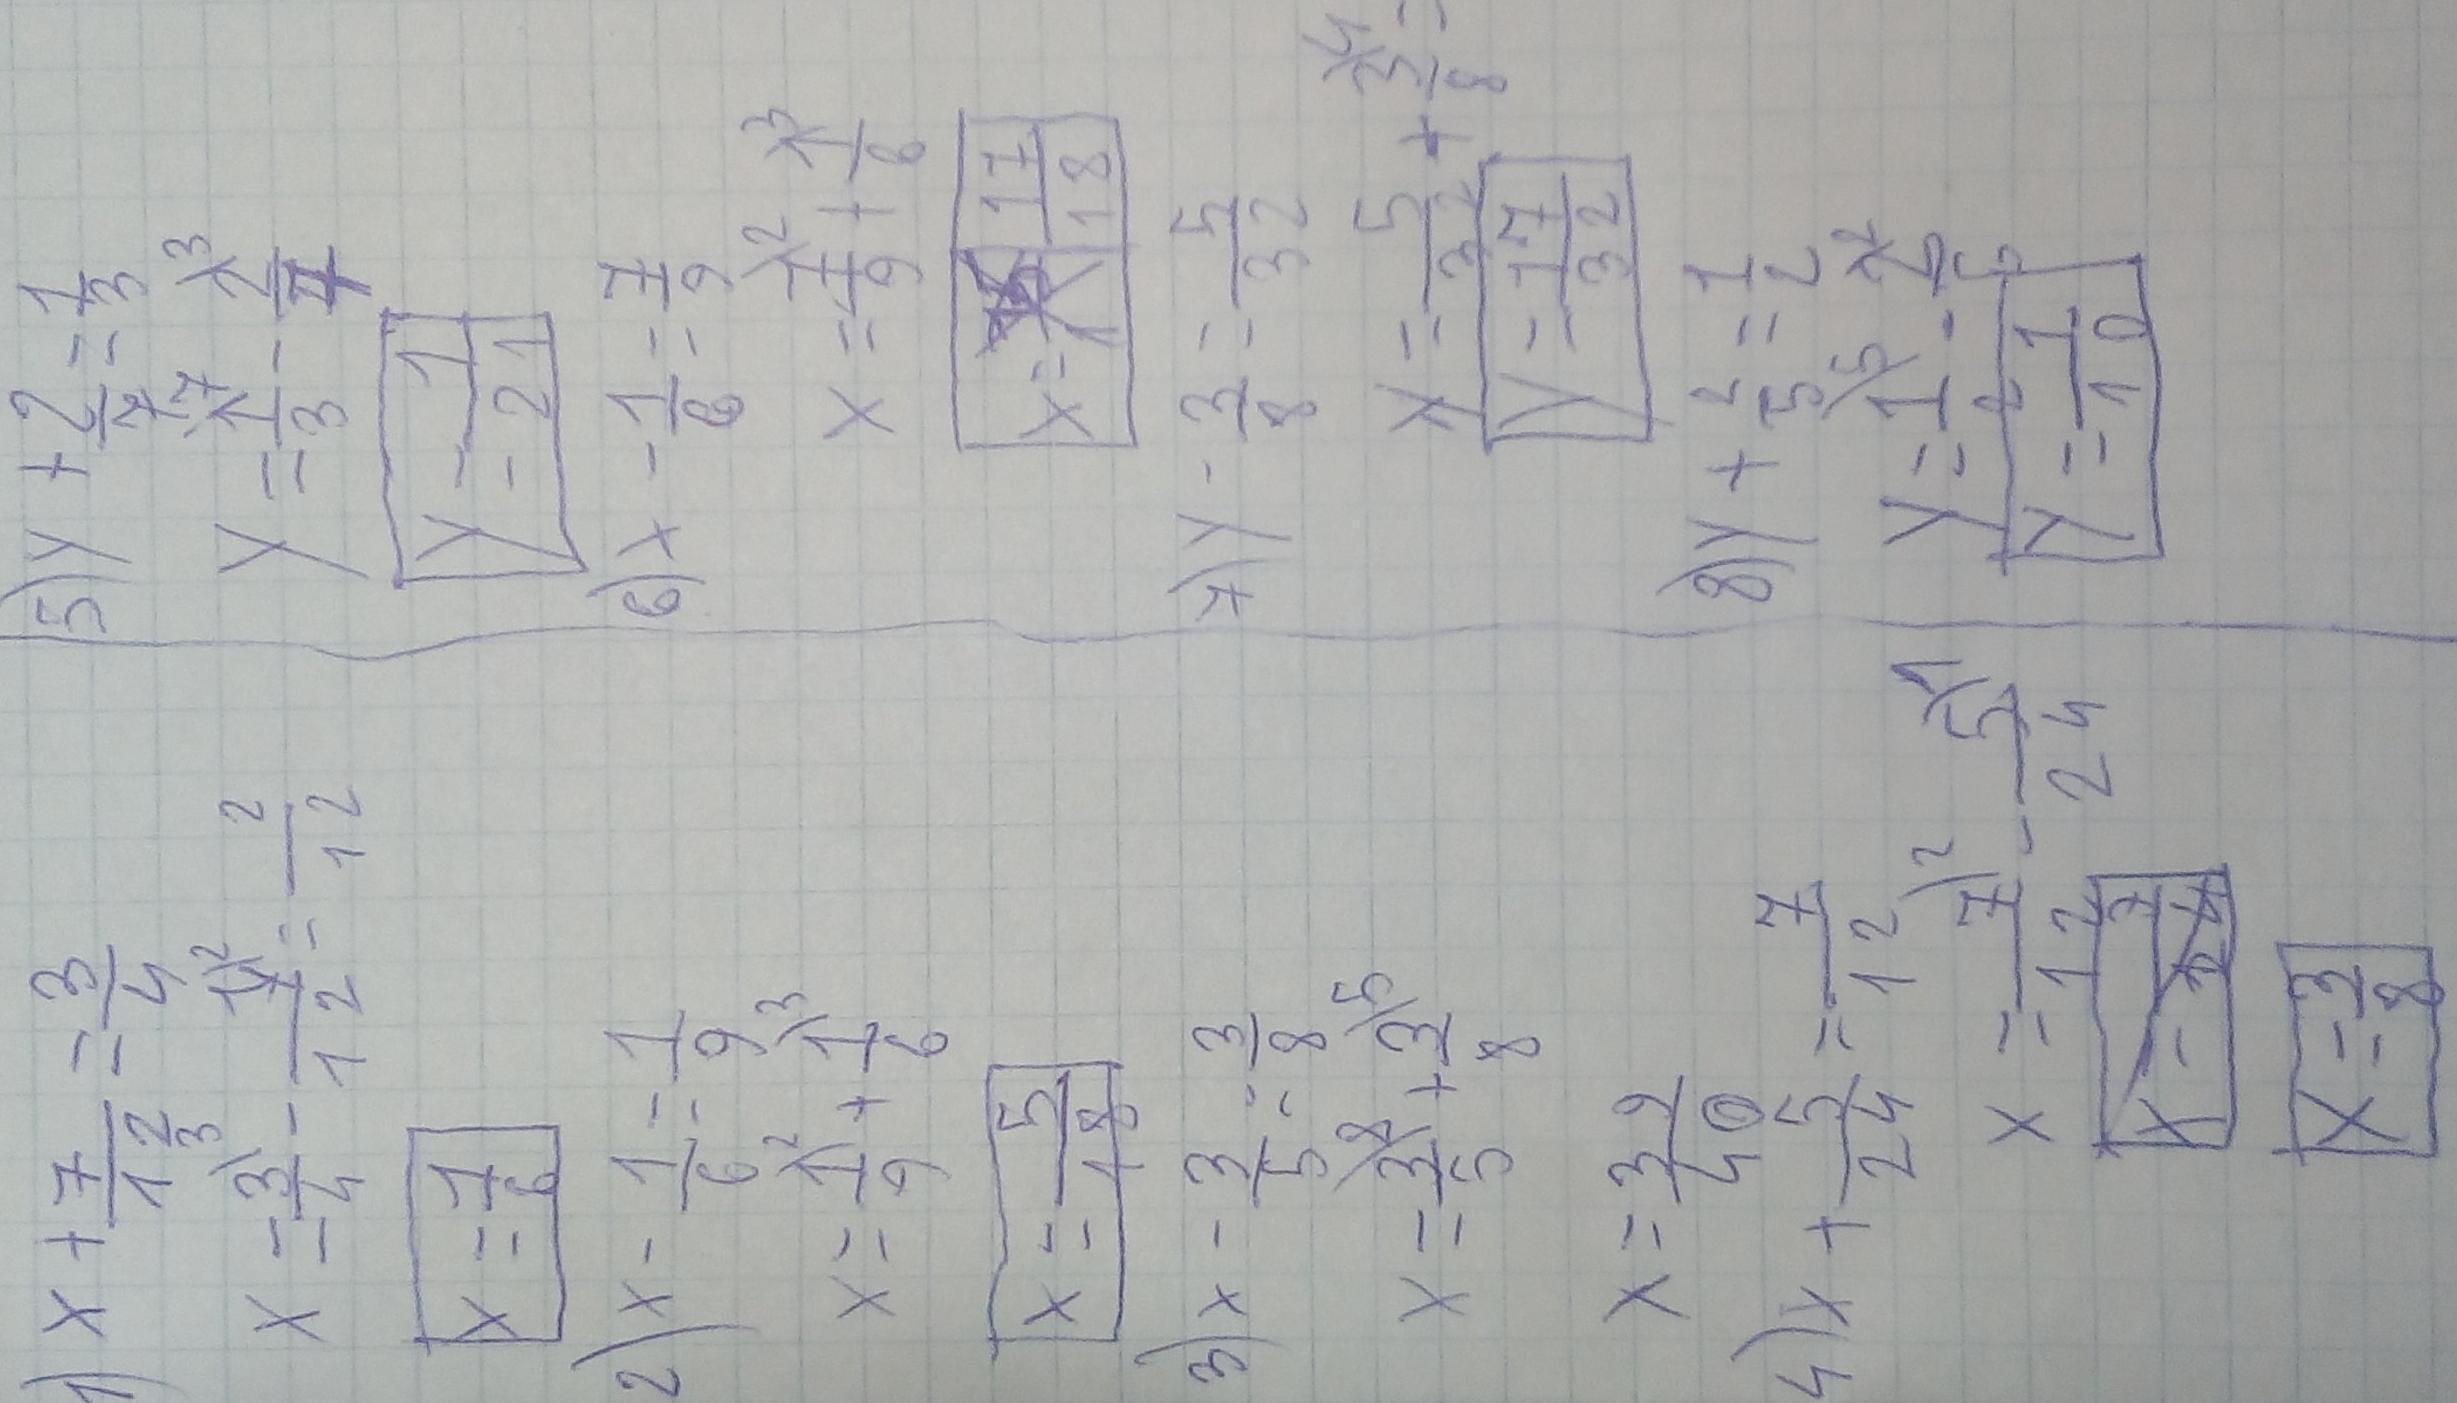 1) x + 7/12 = 3/4
x = 3/4 \3 - 7/12 = 2/12
x = 1/6
2) x - 1/6 = 1/9
x = 1/9 \2 + 1/6 \3
x = 5/18
3) x - 3/5 = 3/8
x = 3/5 \8 + 3/8 \5
x = 39/40
4) x + 5/24 = 7/12
x = 7/12 \2 - 5/24 \1
x = 3/8
5) y + 2/7 = 1/3
y = 1/3 \7 - 2/7 \3
y = 1/21
6) x - 1/6 = 7/9
x = 7/9 \2 + 1/6 \3
x = 17/18
7) y - 3/8 = 5/32
y = 5/32 + 3/8 \4 =
y = 17/32
8) y + 2/5 = 1/2
y = 1/2 \5 - 2/5 \2
y = 1/10